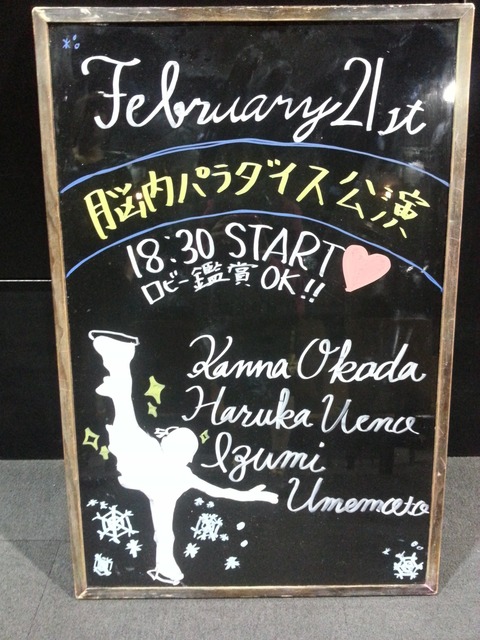 February 21st
脳内パラダイス公演
18:30 START
ロビー鑑賞 OK!!
Kanna Okada
Haruka Ueno
Izumi
Umemoto